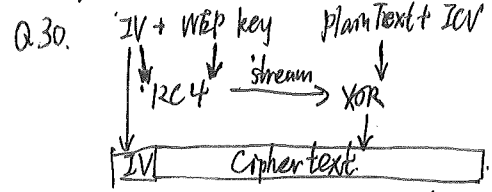 Q.30. IV + WEP key plainText + ICV
RC4 stream XOR
IV Ciphertext.